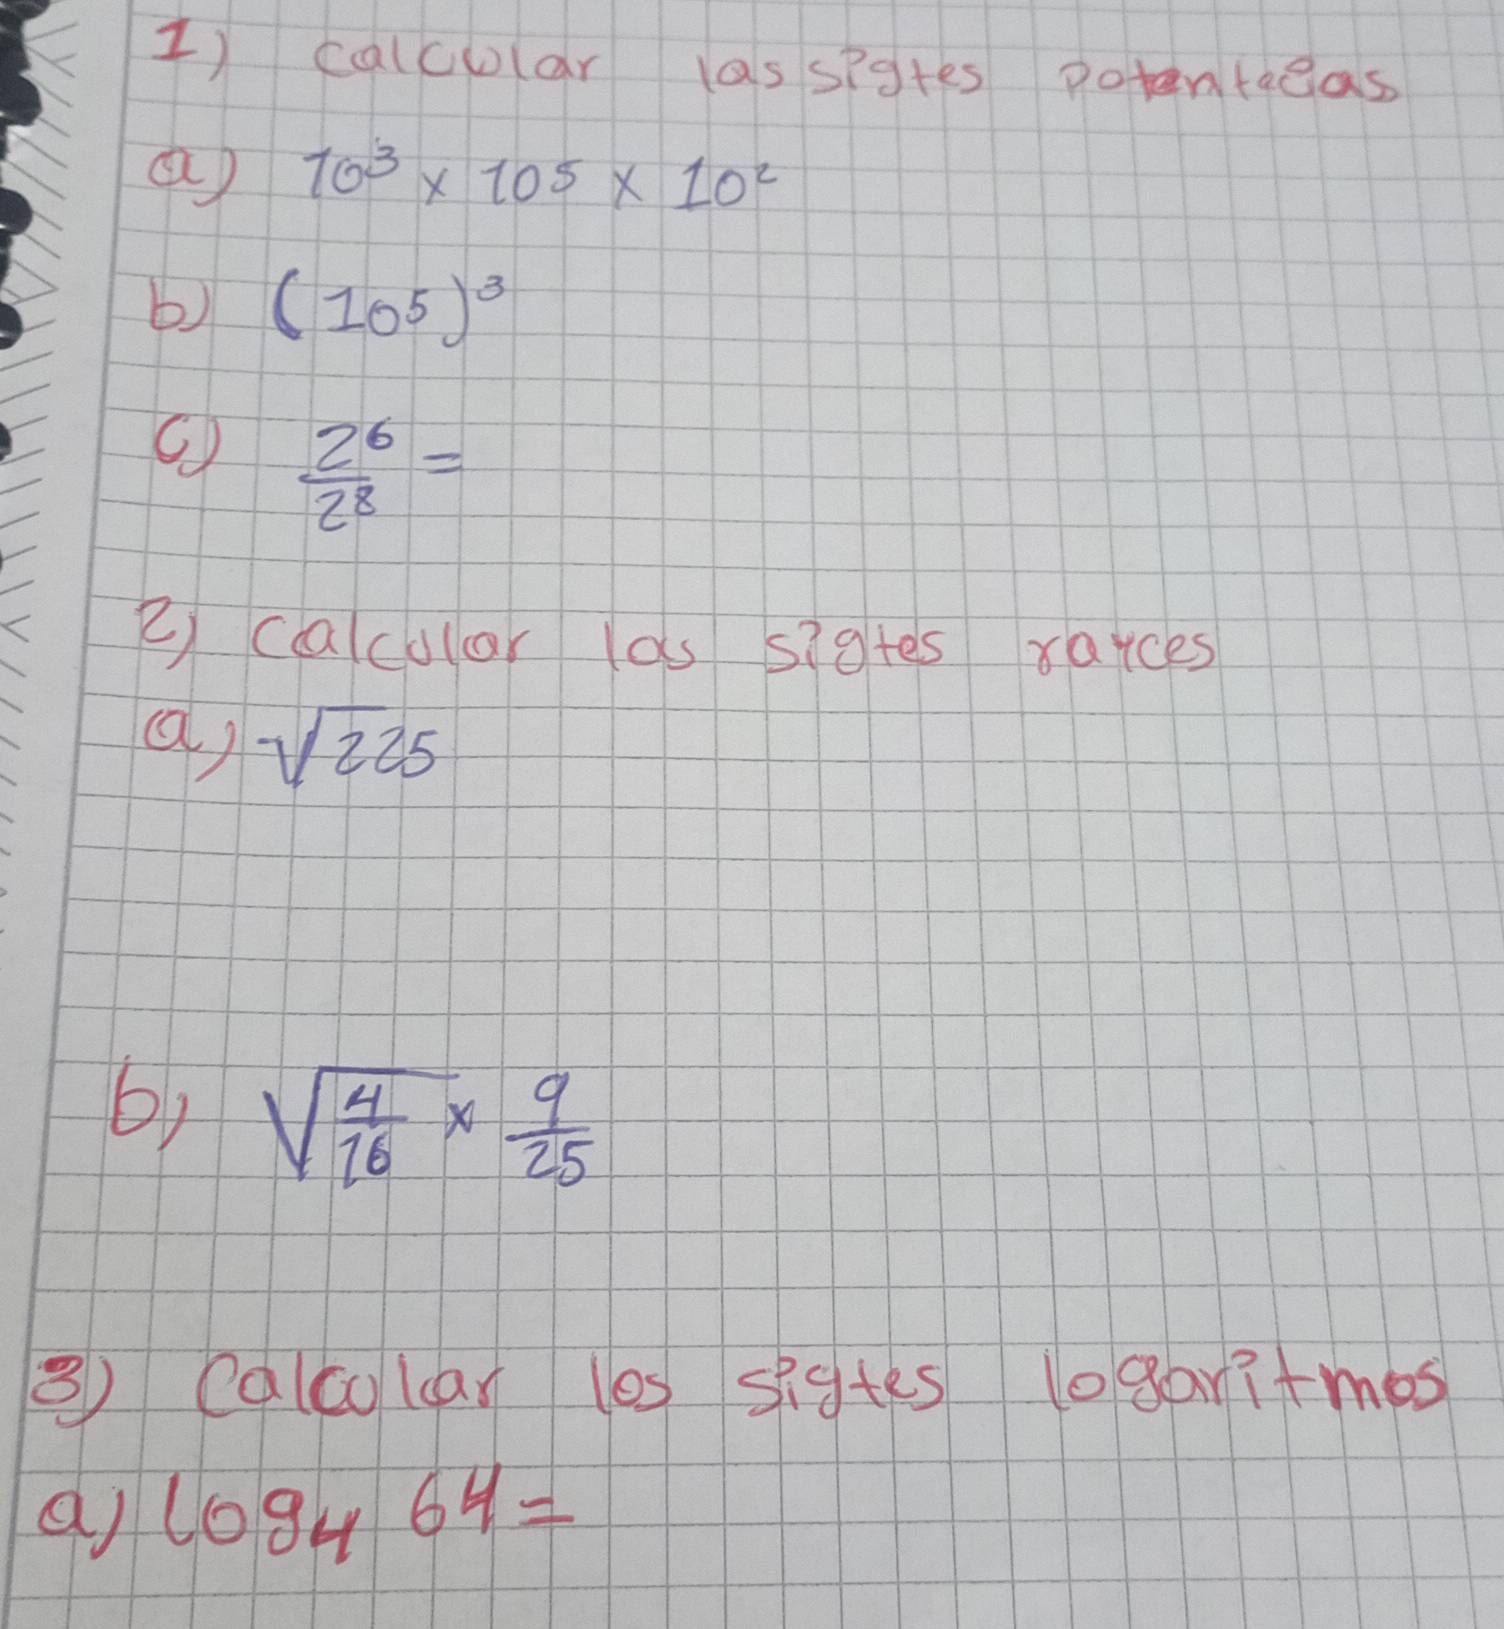 1) calcular las sigtes potenteeas
a) 10³ x 10⁵ x 10²
b) (10⁵)³
c) 2⁶/2⁸ =
2) calcular las sigtes rayces
a) √225
b) √4/16 x 9/25
3) calcular los sigtes logaritmos
a) log₄ 64 =